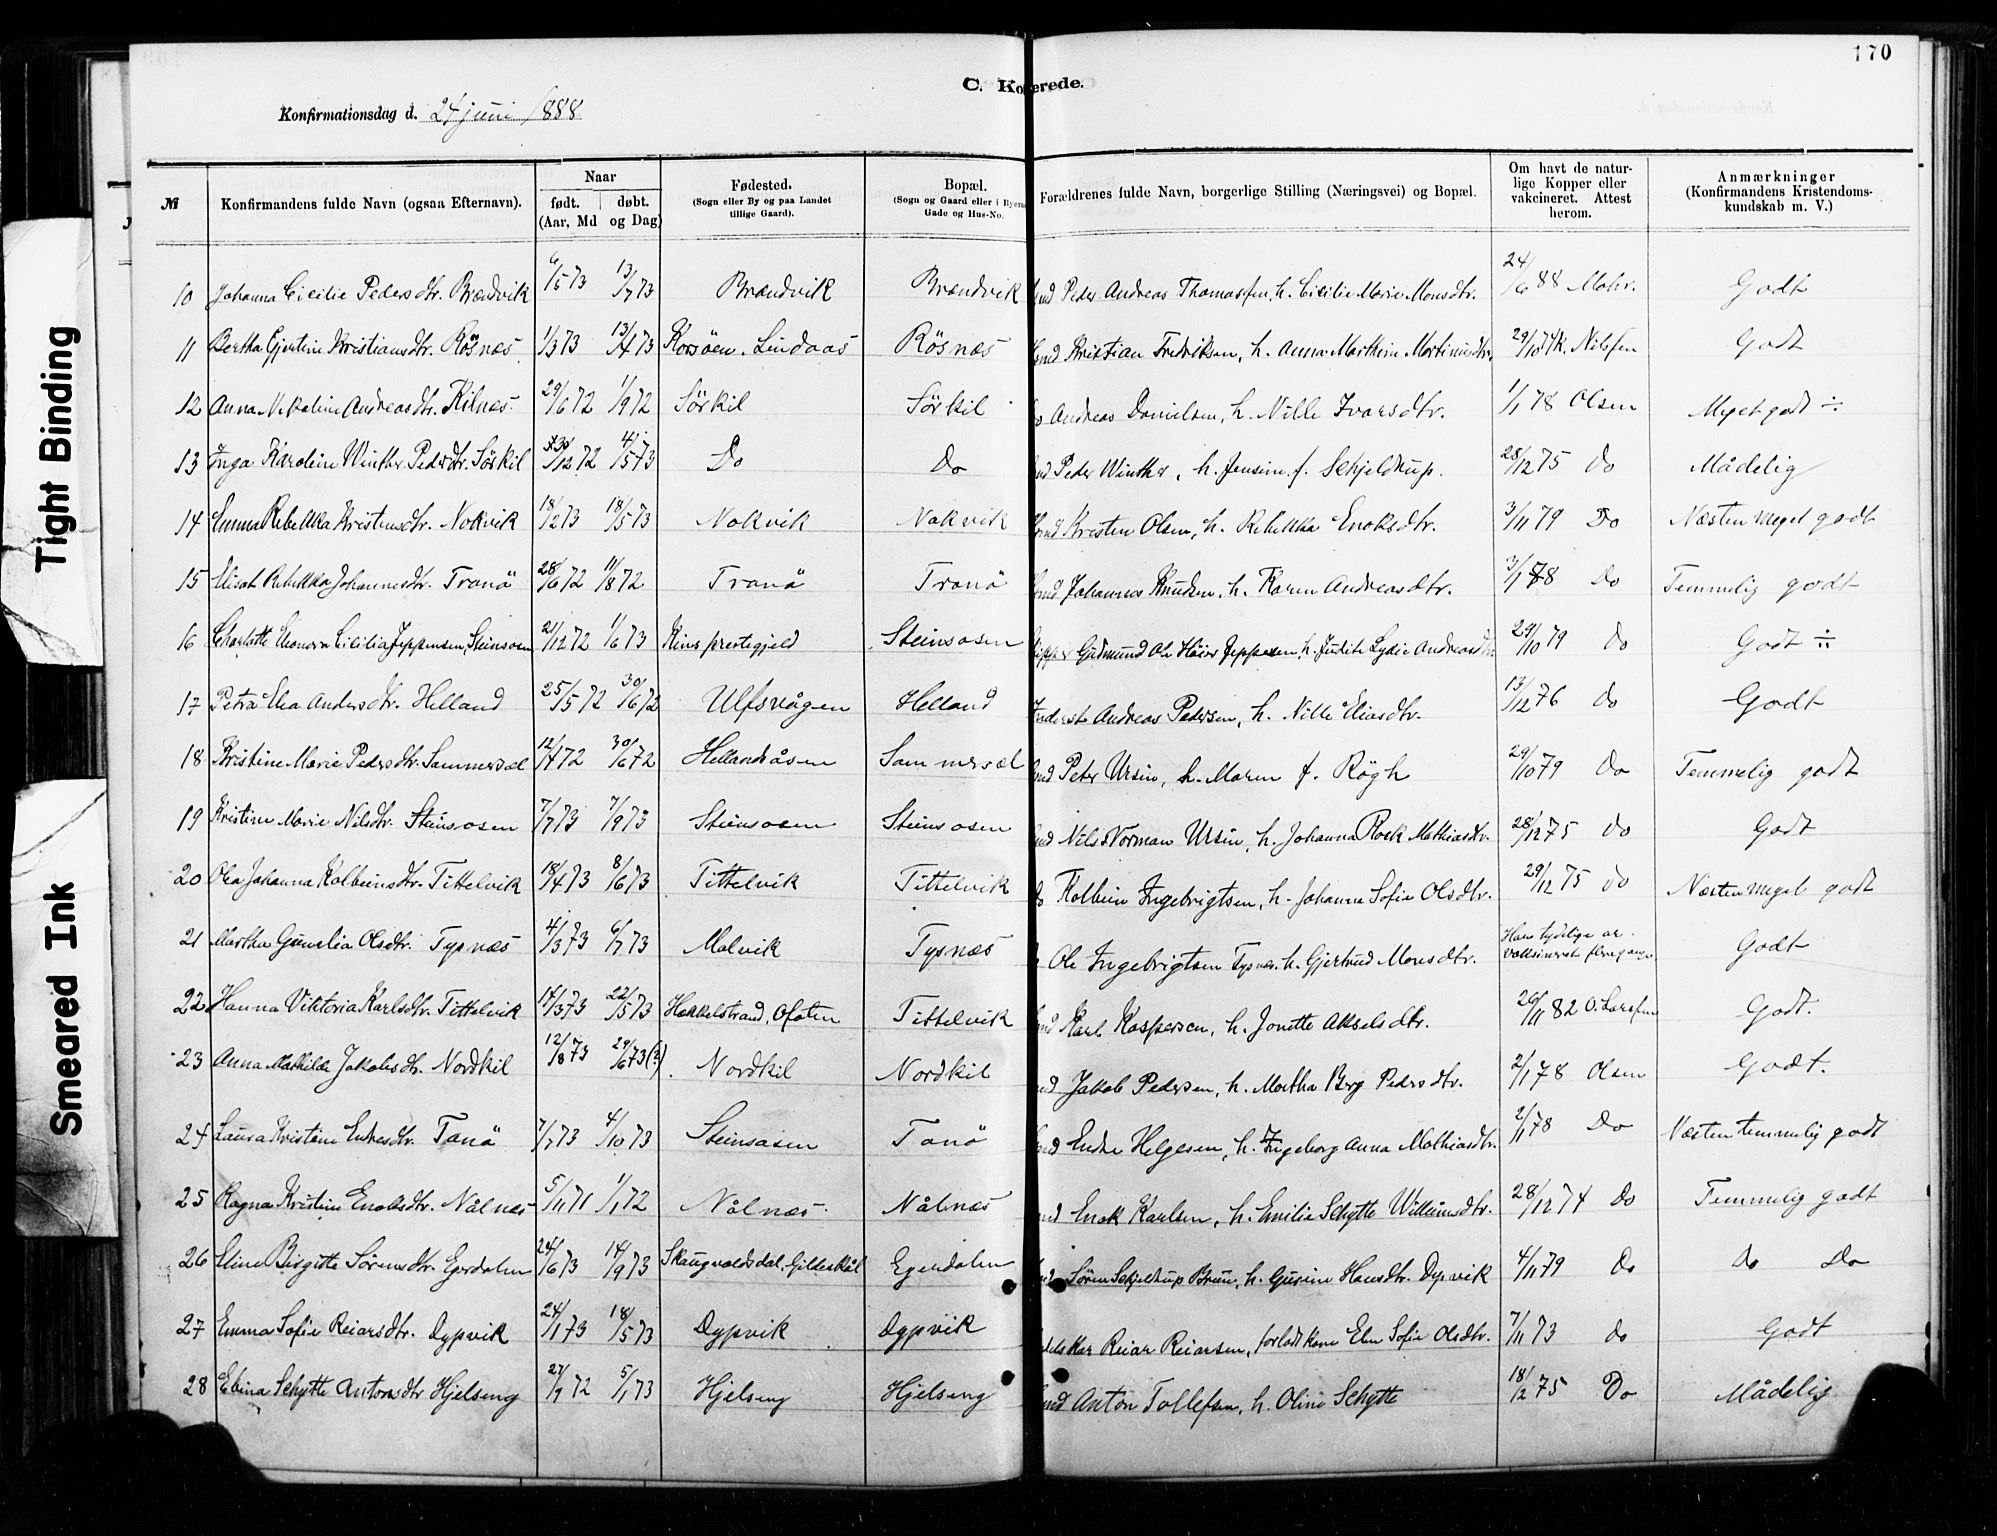 170
C. Ko erede.
Konfirmationsdag d. 24 juni 1888
№ Konfirmandens fulde Navn (ogsaa Efternavn). Naar født. (Aar, Md døbt. og Dag) Fødested. (Sogn eller By og paa Landet tillige Gaard). Bopæl. (Sogn og Gaard eller i Byerne Gade og Hus-No. Forældrenes fulde Navn, borgerlige Stilling (Næringsvei) og Bopæl. Om havt de naturlige Kopper eller vakcineret. Attest herom. Anmærkninger (Konfirmandens Kristendomskundskab m. V.)
10 Johanna Cicilie Pedersdtr. Brændvik 6/5 73 13/7 73 Brændvik Brændvik Peder Andreas Thomassen, h. Cicilie Marie Monsdtr. 24/6 88 Mohr. Godt
11 Bertha Gjertine Kristiansdtr. Rösnæs 1/3 73 13/4 73 Korsöen. Lindaas Rösnæs Kristian Fredriksen, h. Anna Marthine Martinusdtr. 29/10 74 K. Nilssen Godt
12 Anna Nikoline Andreasdtr. Kilnæs 29/6 72 1/9 72 Sörkil Sörkil Andreas Danielsen, h. Nille Ivarsdtr. 1/1 78 Olsen Meget godt ÷
13 Inga Karoline Winther Pedersdtr. Sörkil 30/12 72 4/5 73 Do Do Peder Winther, h. Jensine f. Schjeldrup. 28/12 75 Do Mådelig
14 Emma Rebekka Kristensdtr. Nokvik 18/2 73 18/5 73 Nokvik Nokvik Kristen Olsen, h. Rebekka Enoksdtr. 3/11 79 Do Næsten meget godt
15 Elisat Rebekka Johannesdtr. Tranö 28/6 72 11/8 72 Tranö Tranö Johannes Knudsen, h. Karen Andreasdtr. 3/1 78 Do Temmelig godt
16 Charlotte Elenora Cicilia Jeppesen, Steinsosen 21/12 72 1/6 73 Kins prestegjeld Steinsosen Gudmund Ole Höier Jeppesen, h. Judith Lydie Andreasdtr. 29/10 79 Do Godt ÷
17 Petra Elea Andersdtr. Helland 25/5 72 30/6 72 Ulfsvågen Helland Inderst Andreas Pedersen, h. Nille Eliasdtr. 13/12 76 Do Godt
18 Kristine Marie Pedersdtr. Sammersæl 12/4 72 30/6 72 Hellandsåsen Sammersæl Peter Ursin, h. Maren f. Rögh 29/10 79 Do Temmelig godt
19 Kristine Marie Nilsdtr. Steinsosen 7/7 73 7/9 73 Steinsosen Steinsosen Nils Norman Ursin, h. Johanna Rosk Mathiasdtr. 28/12 75 Do Godt
20 Olea Johanna Kolbeinsdtr. Tittelvik 18/4 73 8/6 73 Tittelvik Tittelvik Kolbein Ingebrigtsen, h. Johanna Sofie Olsdtr. 29/12 75 Do Næsten meget godt
21 Martha Gunelia Olsdtr. Typnæs 4/3 73 6/7 73 Malvik Typnæs Ole Ingebrigtsen Typnæs. h. Gjertrud Monsdtr. Have tydelige ar. Vaksineret flere gange Godt
22 Hanna Viktoria Karlsdtr. Tittelvik 14/3 73 22/5 73 Hækkelstrand, Ofoten Tittelvik Karl Kaspersen, h. Jonette Akselsdtr. 26/11 82 O. Larssen Godt.
23 Anna Mathilde Jakobsdtr. Nordkil 12/8 73 29/6 73(?) Nordkil Nordkil Jakob Pedersen, h. Martha Berg Pedersdtr. 2/1 78 Olsen Godt.
24 Laura Kristine Endresdtr. Tanö 7/7 73 4/10 73 Steinsosen Tanö Endre Helgesen, h. Ingeborg Anna Mathiasdtr. 2/1 78 Do Næsten temmelig godt
25 Ragna Kristine Enoksdtr. Nålnæs 5/11 71 1/1 72 Nålnæs. Nålnæs Enok Karlsen, h. Emilie Schytte Williumsdtr. 28/12 74 Do Temmelig godt
26 Eline Birgitte Sörensdtr. Egerdalen 24/6 73 14/9 73 Skaugvoldsdal, Gildeskål Egerdalen Sören Schjeldrup Bruun, h. Gurine Hansdtr. Dypvik 4/11 79 Do Do Do
27 Emma Sofie Reiarsdtr. Dypvik 24/1 73 18/5 73 Dypvik Dypvik Reiar Reiarsen, forladt kone Elen Sofie Olsdtr. 7/11 73 Do Godt
28 Ebina Schytte Antonsdtr Hjelseng 27/7 72 5/1 73 Hjelseng Hjelseng Anton Tollefsen, h. Oline Schytte 18/2 75 Do Mådelig
Tight Binding
Smeared Ink